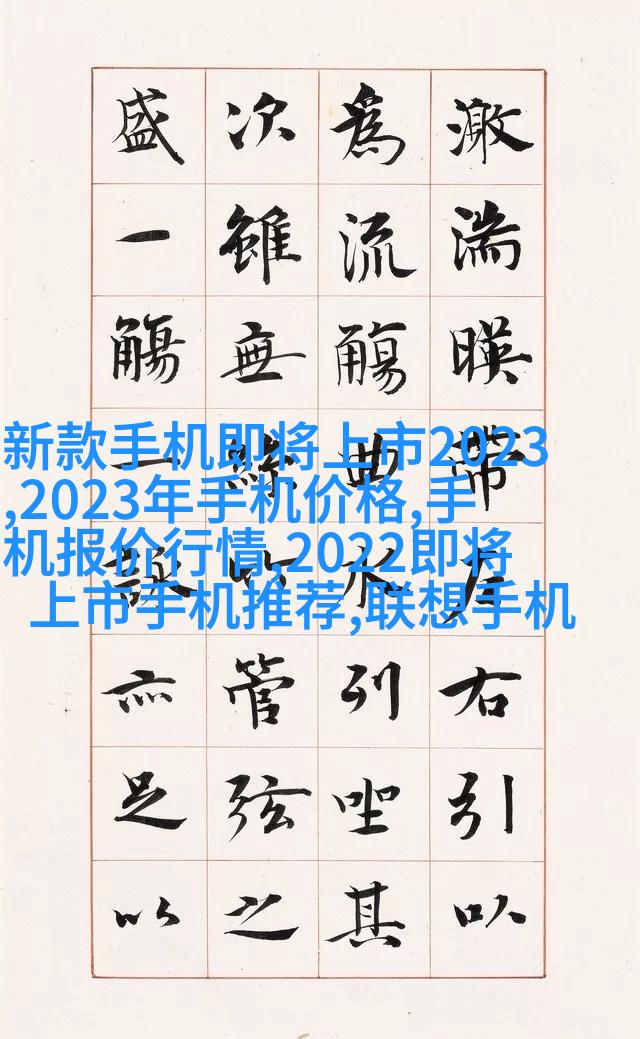 激湍暎帶左右引以
為流觴曲水列坐其
次雖無絲竹管弦之
盛一觴一詠亦足以
新款手机即将上市2023
,2023年手机价格,手
机报价行情,2022即将
上市手机推荐,联想手机